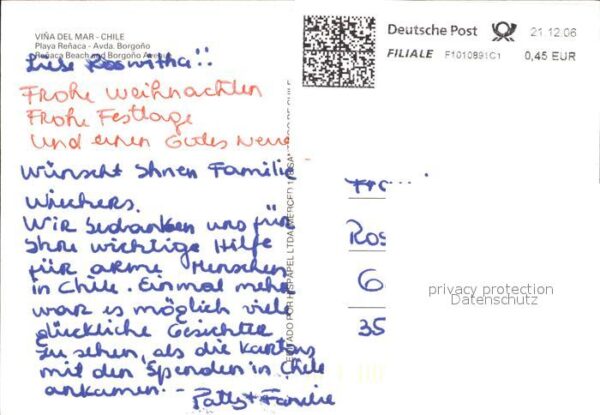 VIÑA DEL MAR - CHILE
Playa Reñaca - Avda. Borgoño
Reñaca Beach and Borgoño Avenue
Liebe Roswitha!!
Frohe Weihnachten
Frohe Festtage
Und einen Gutes Neue
Wünscht Ihnen Familie
Wir bedanken uns für
Ihre wichtige Hilfe
für arme Menschen
in Chile. Einmal mehr
war es möglich viele
glückliche Gesichter
zu sehen, als die Kartons
mit den Spenden in Chile
ankamen. --
Patty + Familie
EDITADO POR HISPAPEL LTDA. MERCED
DE CHILE
Deutsche Post
21 12 06
FILIALE F1010891C1 0,45 EUR
Ros
6
35
privacy protection
Datenschutz